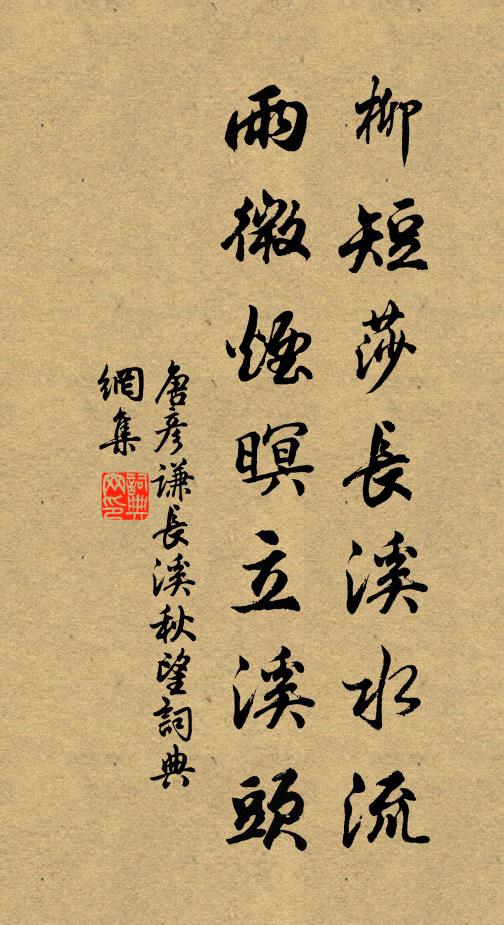 柳短莎長溪水流
雨微煙暝立溪頭
唐彥謙長溪秋望詞典
網集
詞典
网印